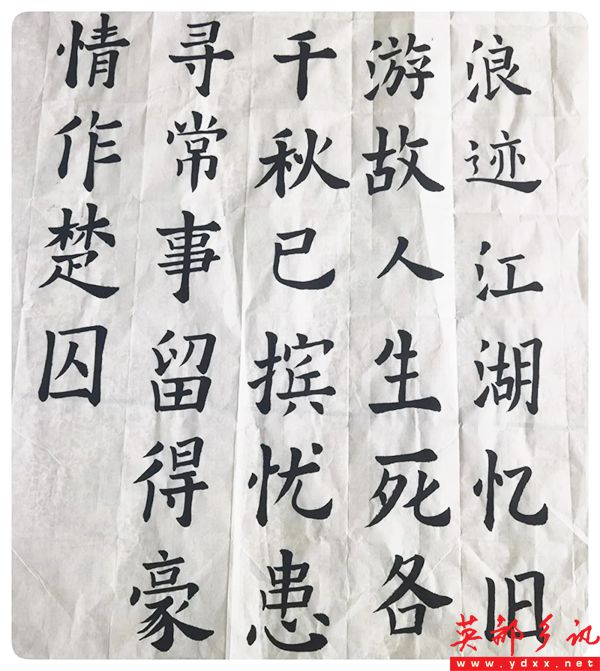 浪迹江湖忆旧
游故人生死各
千秋已摈忧患
寻常事留得豪
情作楚囚
英都乡讯
www.ydxx.net